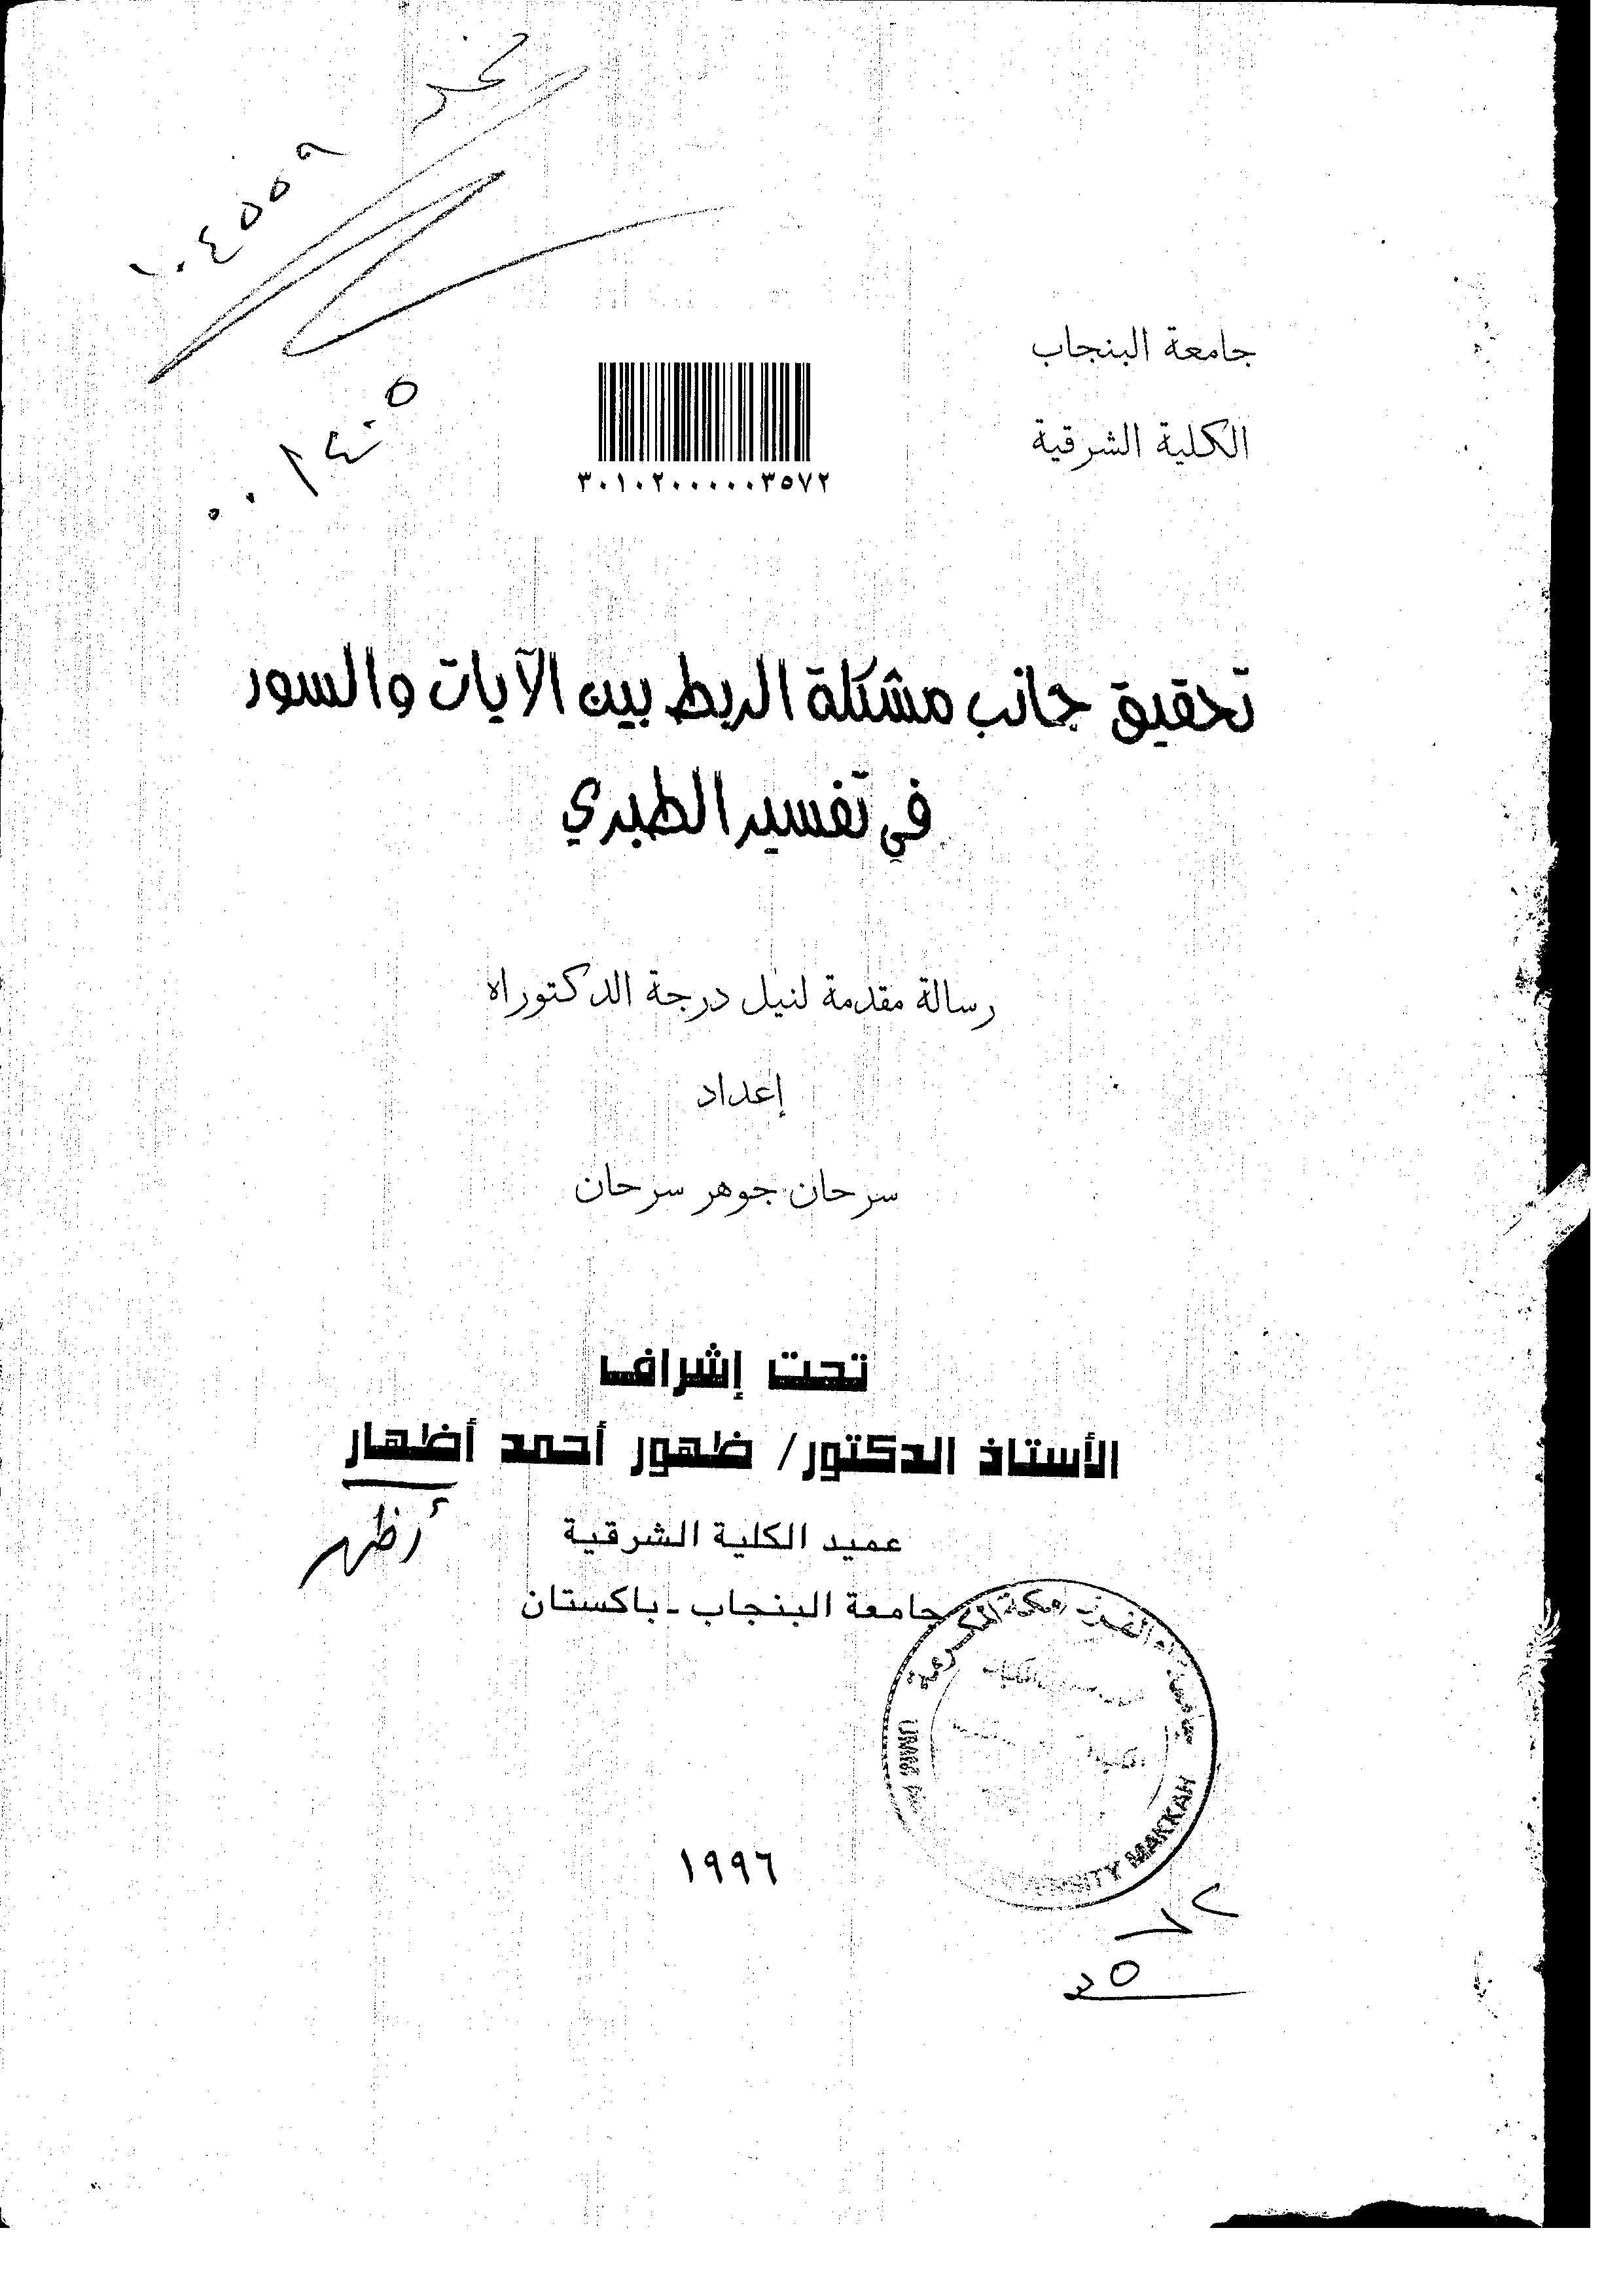 ١٠٤٥٥٩
جامعة البنجاب
الكلية الشرقية
٣٠١٠٢٠٠٠٠٠٣٥٧٢
تحقيق جانب مشكلة الربط بين الآيات والسور
في تفسير الطبري
رسالة مقدمة لنيل درجة الدكتوراه
إعداد
سرحان جوهر سرحان
تحت إشراف
الأستاذ الدكتور/ ظهور أحمد أظهار
أظهر
عميد الكلية الشرقية
جامعة البنجاب - باكستان
جامعة أم القرى مكة المكرمة
UMM
UNIVERSITY MAKKAH
١٩٩٦